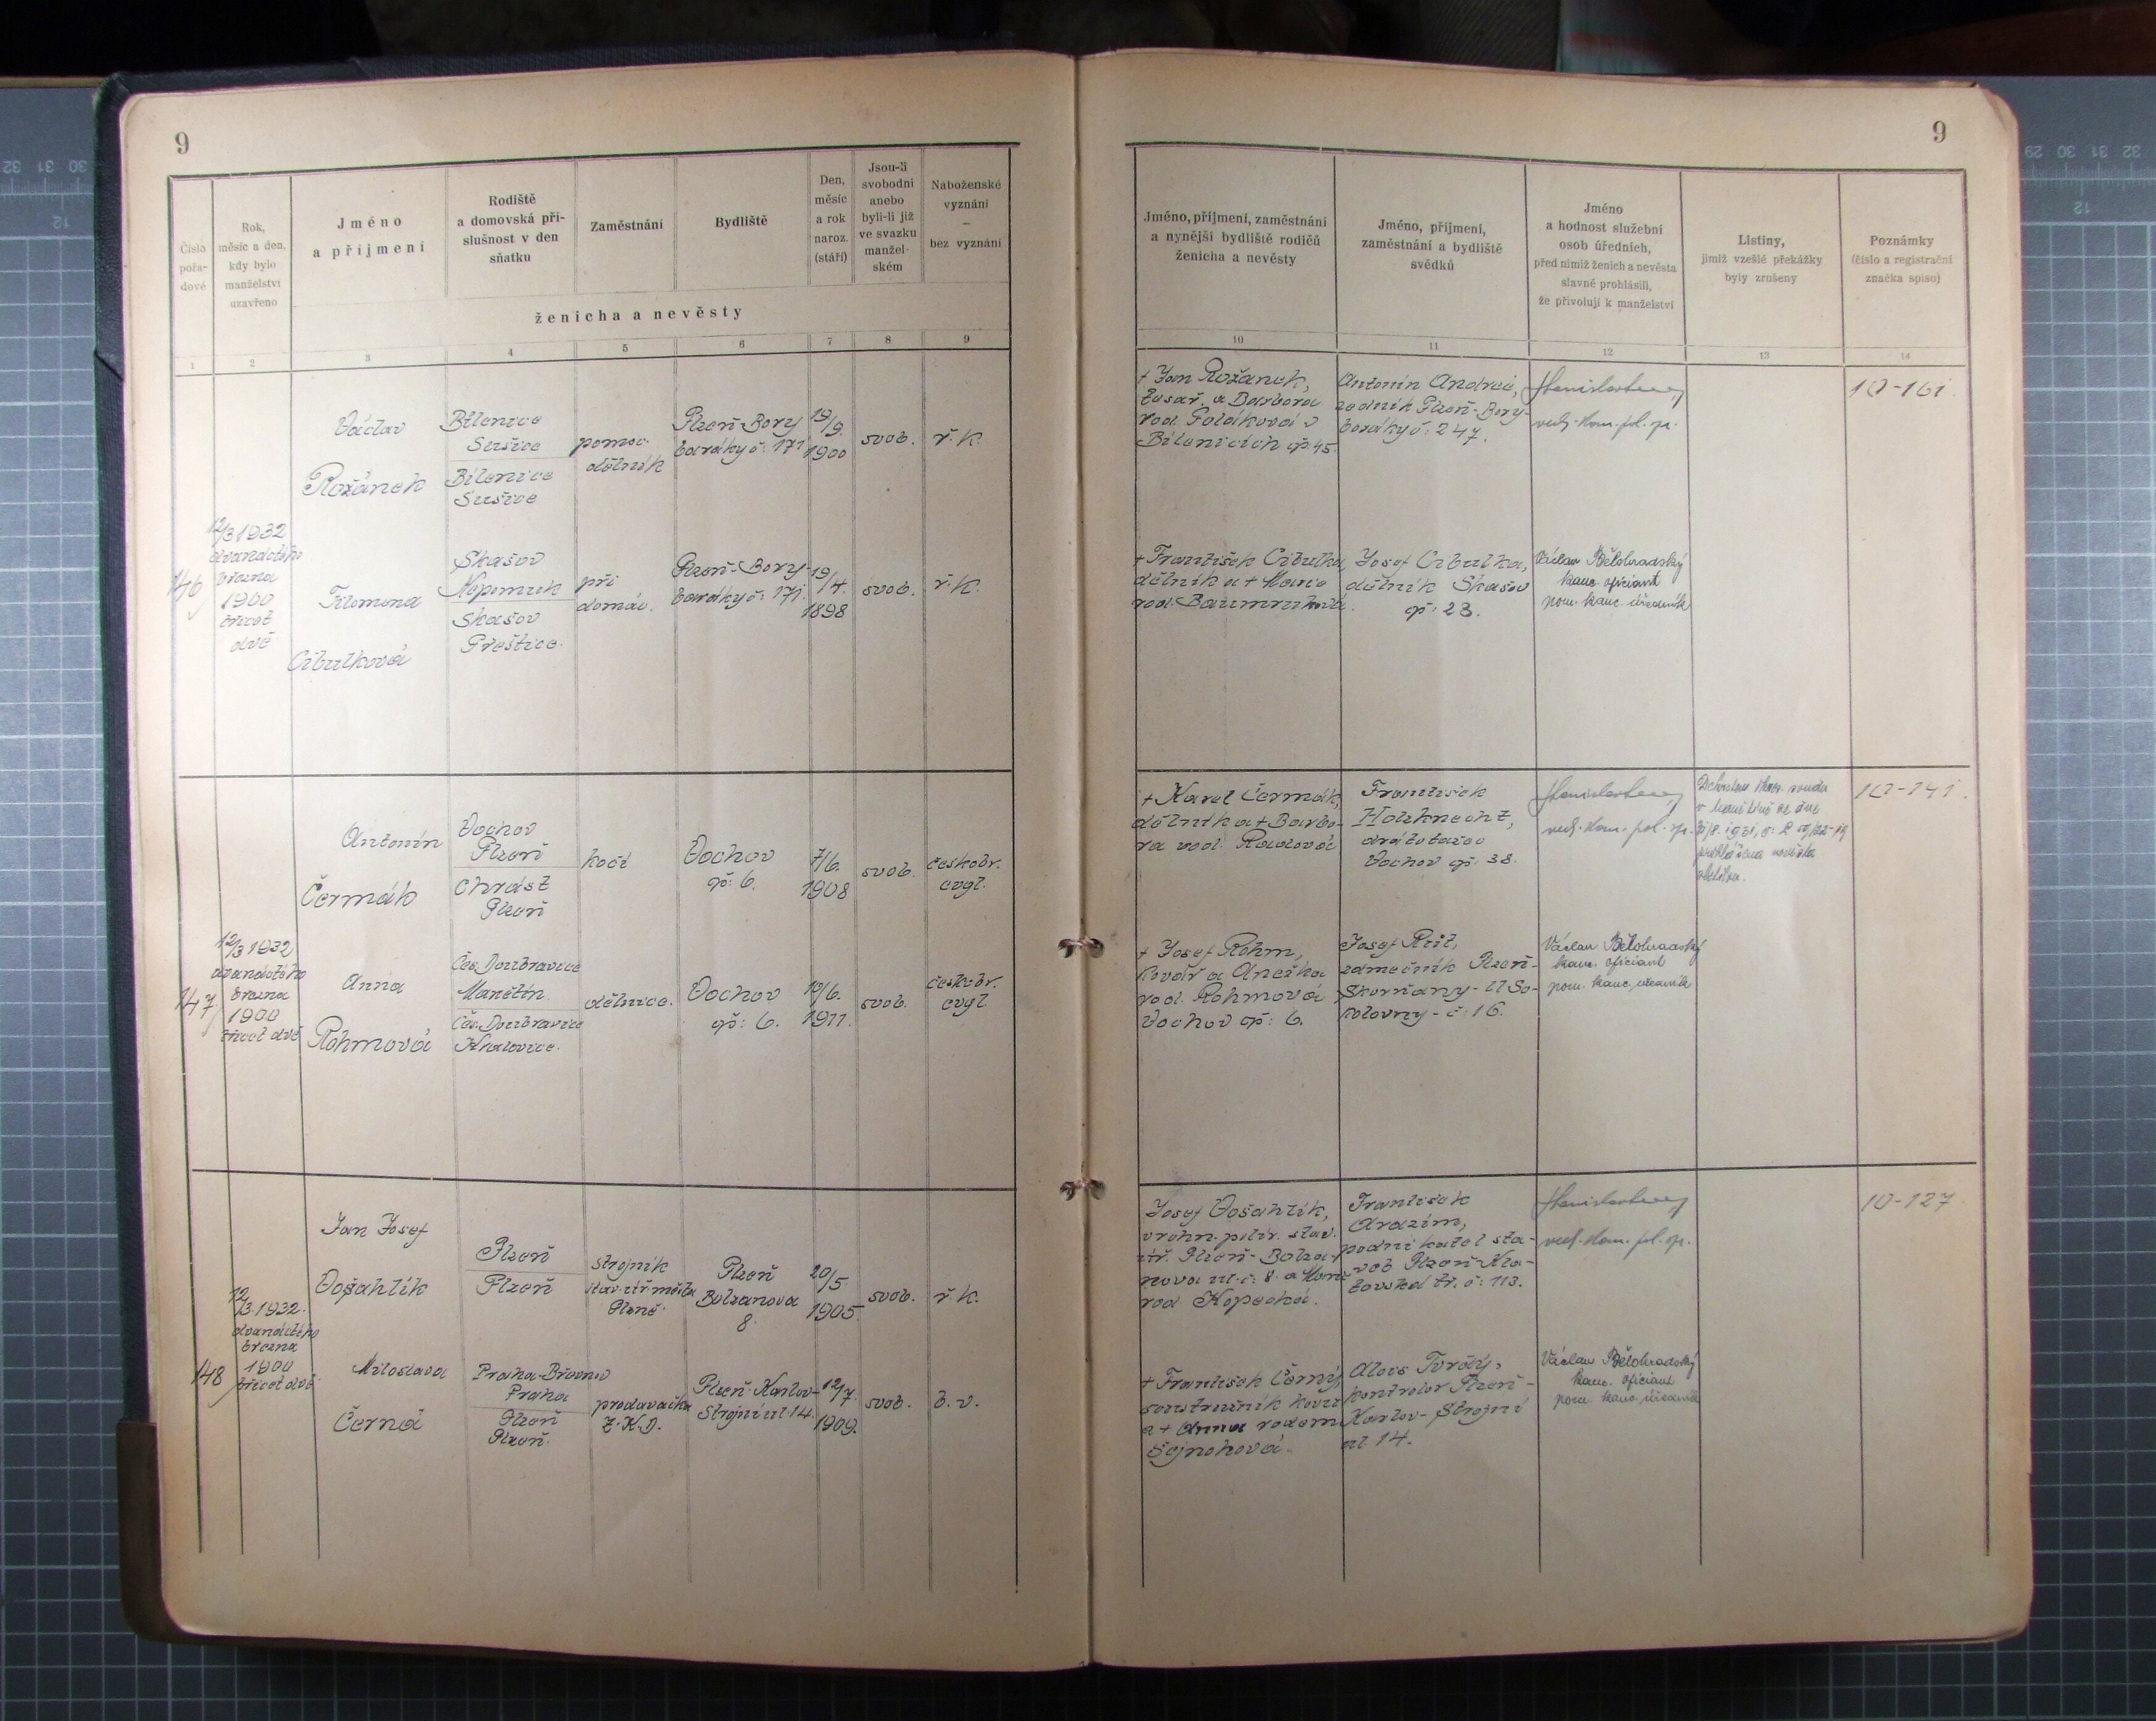 9
Číslo
pořa-
dové
Rok,
měsíc a den,
kdy bylo
manželství
uzavřeno
Jméno
a příjmení
Rodiště
a domovská pří-
slušnost v den
sňatku
Zaměstnání
Bydliště
Den,
měsíc
a rok
naroz.
(stáří)
Jsou-li
svobodni
anebo
byli-li již
ve svazku
manžel-
ském
Naboženské
vyznání
–
bez vyznání
ženicha a nevěsty
1 2 3 4 5 6 7 8 9
146
12/3 1932
dvanáctého
března
1900
třicet
dvě
Václav
Rožánek
Bílenice
Sušice
Bílenice
Sušice
pomoc.
dělník
Plzeň-Bory
baráky č: 171
19/9.
1900
svob.
ř.k.
Filomena
Cibulková
Skašov
Nepomuk
Skašov
Přeštice.
při
domác.
Plzeň-Bory
baráky č: 171.
19/4.
1898
svob.
ř.k.
147
12/3 1932
dvanáctého
března
1900
třicet dvě
Antonín
Čermák
Vochov
Plzeň
Chrást
Plzeň
kočí
Vochov
čp: 6.
7/6.
1908
svob.
českobr.
evgl.
Anna
Röhmová
Čes. Doubravice
Manětín
Čes. Doubravice
Kralovice.
dělnice.
Vochov
čp: 6.
19/6.
1911.
svob.
českobr.
evgl.
148
12/3 1932.
dvanáctého
března
1900
třicet dvě
Jan Josef
Došahlík
Plzeň
Plzeň
strojník
stav. úř. města
Plzně.
Plzeň
Bolzanova
8.
20/5
1905.
svob.
ř.k.
Miloslava
Černá
Praha-Břevnov
Praha
Plzeň
Plzeň.
prodavačka
Z.K.D.
Plzeň-Karlov-
Strojní ul 14.
12/7.
1909.
svob.
b.v.
9
Jméno, příjmení, zaměstnání
a nynější bydliště rodičů
ženicha a nevěsty
Jméno, příjmení,
zaměstnání a bydliště
svědků
Jméno
a hodnost služební
osob úředních,
před nimiž ženich a nevěsta
slavně prohlásili,
že přivolují k manželství
Listiny,
jimiž vzešlé překážky
byly zrušeny
Poznámky
(číslo a registrační
značka spisů)
10 11 12 13 14
+ Jan Rožánek,
tesař. a Barbora
rod. Poláková v
Bílenicích čp. 45.
Antonín Andrei,
zedník Plzeň-Bory-
baráky č: 247.
ved. kom. pol. spr.
10-161
+ František Cibulka
dělník a + Marie
rod. Baumruková.
Josef Cibulka,
dělník Skašov
čp: 23.
Václav Bělohradský
kanc. oficiant
pom. kanc. úředník
+ Karel Čermák,
dělník a + Barbo-
ra rod. Raulová
František
Holzknecht,
drátotažec
Vochov čp: 38.
ved. kom. pol. spr.
ze dne
1931, č:
10-141.
+ Josef Röhm,
kovář a Anežka
rod. Röhmová
Vochov čp: 6.
Josef
zámečník Plzeň-
Skvrňany- U So-
kolovny - č: 16.
Václav Bělohradský
kanc. oficiant
pom. kanc. úředník
Josef Došahlík,
vrchn. polír. stav.
úř. Plzeň - Bolza-
nova ul. č: 8. a Marie
rod Kopecká.
František
Arazim,
podnikatel sta-
veb Plzeň-Kla-
tovská tř. č: 113.
ved. kom. pol. spr.
10-127
+ František Černý,
soustružník kovů
a + Anna rodem
Šejnohová.
Alois Tvrdý,
kontrolor Plzeň -
Karlov- Strojní
ul 14.
Václav Bělohradský
kanc. oficiant
pom. kanc. úředník